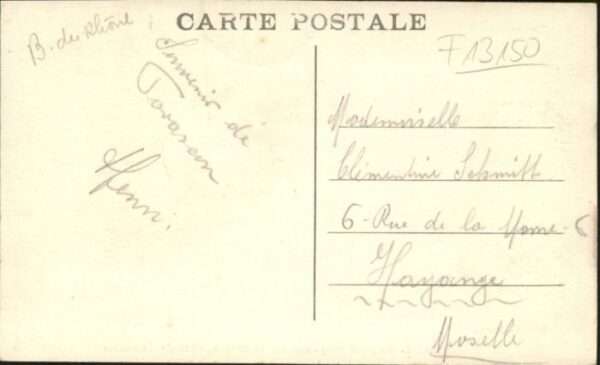 CARTE POSTALE
B. du Rhône
F 13150
Souvenir de
Tarascon
Henri.
Mademoiselle
Clémentine Schmitt
6 - Rue de la Marne - 6
Hayange
Moselle